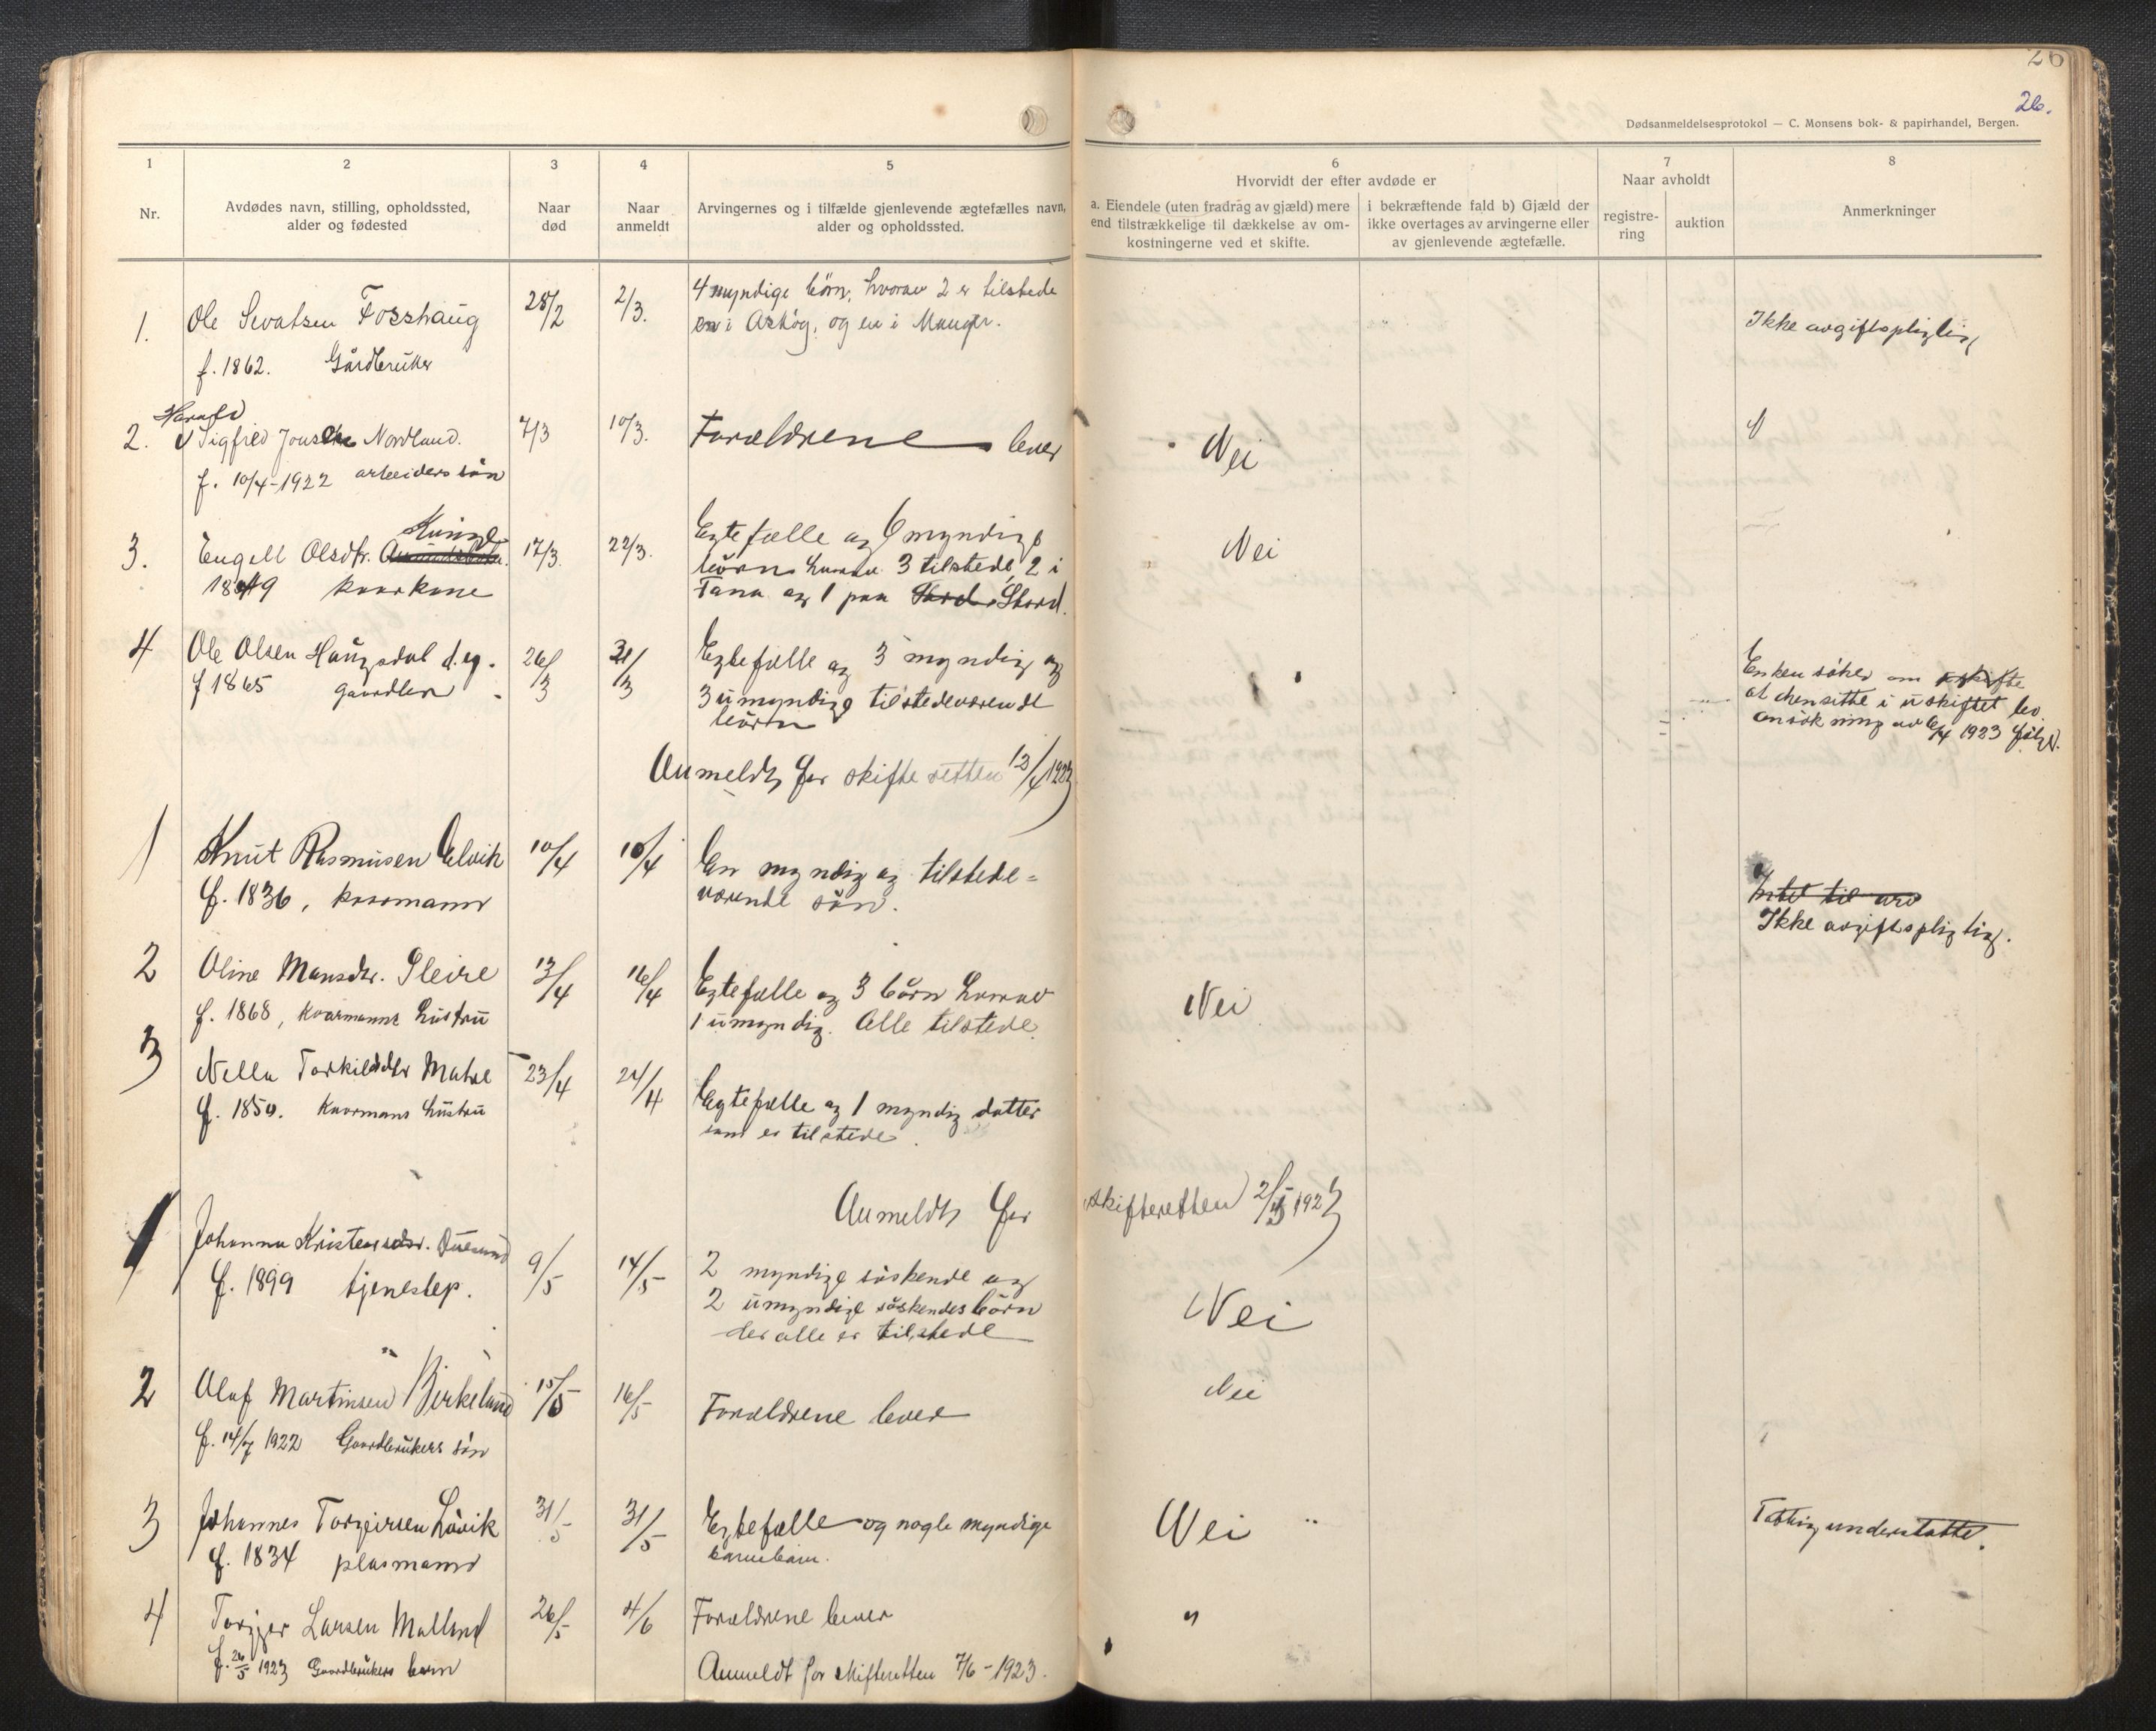 26
26.
Dødsanmeldelsesprotokol — C. Monsens bok- & papirhandel, Bergen.
1
2
3
4
5
6
7
8
Nr.
Avdødes navn, stilling, opholdssted,
alder og fødested
Naar
død
Naar
anmeldt
Arvingernes og i tilfælde gjenlevende ægtefælles navn,
alder og opholdssted.
Hvorvidt der efter avdøde er
a. Eiendele (uten fradrag av gjæld) mere
end tilstrækkelige til dækkelse av om-
kostningerne ved et skifte.
i bekræftende fald b) Gjæld der
ikke overtages av arvingerne eller
av gjenlevende ægtefælle.
Naar avholdt
registre-
ring
auktion
Anmerkninger
1. Ole Sevatsen Fosshaug 28/2 2/3. 4 myndige børn, hvorav 2 er tilstede
en i Askøy, og en i Manger.
f. 1862. Gårdbruker
Ikke avgiftspligtig
Harald
2. Sigfred Jonsen Nordland. 7/3 10/3. Forældrene lever Nei
f. 10/4-1922 arbeiders søn
Kvinge
3. Engell Olsdtr. 17/3. 22/3. Egtefælle og 6 myndige Nei
børn hvorav 3 tilstede, 2 i
1849 kaarkone
Fana og 1 paa Stord.
4 Ole Olsen Haugsdal d.eg. 26/3 31/3 Egtefælle og 3 myndig og
f 1865 gaardbr
3 umyndige tilstedeværende
børn
Enken søker om
at hensitte i uskiftet bo.
ansøkning av 6/4 1923 følger.
Anmeldt for skifteretten 13/4 1923
1 Knut Rasmusen Elvik 10/4 10/4 En myndig og tilstede-
værende søn.
f. 1836, kaarmann
Intet til arv
Ikke avgiftspligtig.
2 Oline Mansdtr. Sleire 13/4 16/4 Egtefælle og 3 børn hvorav Nei
f. 1868, kaarmanns hustru
1 umyndig. Alle tilstede.
3 Nella Torkildsdtr Matre 23/4 24/4 Egtefælle og 1 myndig datter
som er tilstede.
f. 1850. Kaarmans hustru
Anmeldt for skifteretten 2/5 1923
1 Johanna Kristensdtr. Duesund 9/5 14/5 2 myndige søskende og
f. 1899 tjenestep.
2 umyndige søskendesbørn
der alle er tilstede
Nei
2 Olaf Martinsen Birkeland 15/5 16/5 Forældrene lever Nei
f. 14/7 1922 Gaardbrukers søn
3 Johannes Torgeirsen Låvik 31/5 31/5 Egtefælle og nogle myndige
barnebarn.
f. 1834 plasmann
Nei "
Fattigunderstøttet.
4 Torgjer Larsen Molland 26/5 4/6 Forældrene lever "
f. 26/5 1923 Gaardbrukers barn
Anmeldt for skifteretten 7/6-1923.